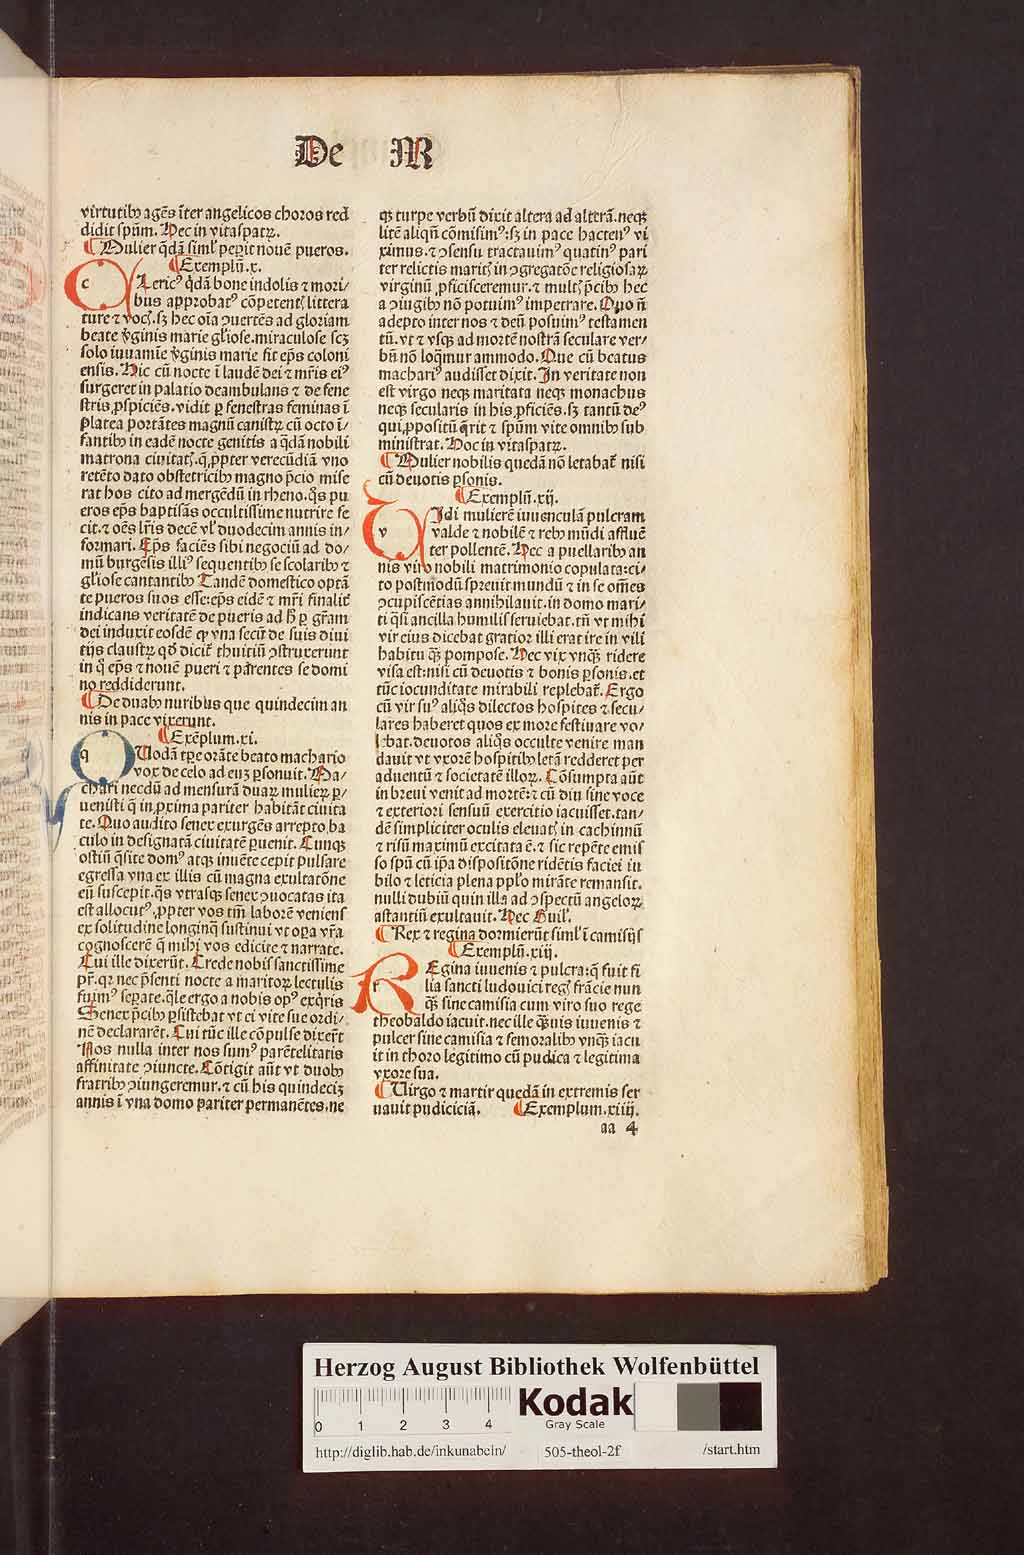 De M
virtutibꝰ agēs īter angelicos choros red
didit spūm. Hec in vitaspatꝝ.
¶ Mulier q̄dā siml̓ peꝑit nouē pueros.
¶ Exemplū .x.
c Leric⁹ q̄dā bone indolis ⁊ mori/
bus approbat⁹ cōpetentꝭ littera
ture ⁊ vocꝭ. sꝫ hec oīa ↄuertēs ad gloriam
beate v̓ginis marie gl̓iose. miraculose scꝫ
solo iuuamīe v̓ginis marie fit ep̄s coloni
ensis. Hic cū nocte ī laudē dei ⁊ mr̄is ei⁹
surgeret in palatio deambulans ⁊ de fene
stris ꝓspiciēs. vidit ꝑ fenestras feminas ī
platea portātes magnū canistꝝ cū octo ī/
fantibꝰ in eadē nocte genitis a q̄dā nobili
matrona ciuitatꝭ. q̄ ꝓpter verecūdiā vno
retēto dato obstetricibꝰ magno p̄cio mise
rat hos cito ad mergēdū in rheno. q̄s pu
eros ep̄s baptisās occultissime nutrire fe
cit. ⁊ oēs lr̄is decē vl̓ duodecim annis in/
formari. Ep̄s faciēs sibi negociū ad do/
mū burgēsis illi⁹ sequentibꝰ se scolaribꝰ ⁊
gl̓iose cantantibꝰ Tandē domestico optā
te pueros suos esse: ep̄s eidē ⁊ mr̄i finalit̓
indicans veritatē de pueris ad hꝫ ꝑ gr̄am
dei induxit eosdē ꝙ vna secū de suis diui
tijs claustꝝ qd̓ dicit̓ thuitiū ↄstruxerunt
in q̓ ep̄s ⁊ nouē pueri ⁊ pārentes se domi
no reddiderunt.
¶ De duabꝰ nuribus que quindecim an
nis in pace vixerunt.
¶ Exēplum .xi.
q Uodā tꝑe orāte beato machario
vox de celo ad euꝫ ꝑsonuit. Ma/
chari necdū ad mensurā duaꝝ mulieꝝ ꝑ/
uenisti q̄ in ꝓxima pariter habitāt ciuita
te. Quo audito senex exurgēs arrepto ba
culo in designatā ciuitatē ꝑuenit. Cunqꝫ
ostiū q̄site dom⁹ atqꝫ inuēte cepit pulsare
egressa vna ex illis cū magna exultatōne
eū suscepit. q̄s vtrasqꝫ senex ↄuocatas ita
est allocut⁹. ꝓpter vos tm̄ laborē veniens
ex solitudine longinq̄ sustinui vt oꝑa vr̄a
cognoscerē q̄ mihi vos edicite ⁊ narrate.
Cui ille dixerūt. Crede nobis sanctissime
pr̄. qr nec p̄senti nocte a maritoꝝ lectulis
fuim⁹ seꝑate. q̄le ergo a nobis op⁹ exq̄ris
Senex p̄cibꝰ ꝑsistebat vt ei vite sue ordi/
nē declararēt. Cui tūc ille cōpulse dixerūt
Nos nulla inter nos sum⁹ parētelitatis
affinitate ↄiuncte. Cōtigit aūt vt duobꝰ
fratribꝰ ↄiungeremur. ⁊ cū his quindeciꝫ
annis ī vna domo pariter permanētes. ne
qꝫ turpe verbū dixit altera ad alterā. neqꝫ
litē aliqn̄ cōmisim⁹: sꝫ in pace hacten⁹ vi
ximus. ⁊ ↄsensu tractauim⁹ quatin⁹ pari
ter relictis maritꝭ in ↄgregatōe religiosaꝝ
virginū ꝓficisceremur. ⁊ multꝭ p̄cibꝰ hec
a ↄiugibꝰ nō potuim⁹ impetrare. Quo n̄
adepto inter nos ⁊ deū posuim⁹ testamen
tū. vt ⁊ vsqꝫ ad mortē nostrā seculare ver/
bū nō loq̄mur ammodo. Que cū beatus
machari⁹ audisset dixit. In veritate non
est virgo neqꝫ maritata neqꝫ monachus
neqꝫ secularis in his ꝓficiēs. sꝫ tantū de⁹
qui ꝓpositū q̄rit ⁊ spūm vite omnibꝰ sub
ministrat. Hoc in vitaspatꝝ.
¶ Mulier nobilis quedā nō letabat̓ nisi
cū deuotis ꝑsonis.
¶ Exemplū .xij.
v Idi mulierē iuuenculā pulcram
valde ⁊ nobilē ⁊ rebꝰ mūdi affluē
ter pollentē. Hec a puellaribꝰ an
nis viro nobili matrimonio copulata: ci/
to postmodū spreuit mundū ⁊ in se om̄es
ↄcupiscētias annihilauit. in domo mari/
ti q̄si ancilla humilis seruiebat. tn̄ vt mihi
vir eius dicebat gratior illi erat ire in vili
habitu qꝫ pompose. Hec vix vnqꝫ ridere
visa est: nisi cū deuotis ⁊ bonis ꝑsonis. et
tūc iocunditate mirabili replebat̓. Ergo
cū vir su⁹ aliq̄s dilectos hospites ⁊ secu/
lares haberet quos ex more festiuare vo/
lebat. deuotos aliq̄s occulte venire man
dauit vt vxorē hospitibꝰ letā redderet per
aduentū ⁊ societatē illoꝝ. Cōsumpta aūt
in breui venit ad mortē: ⁊ cū diu sine voce
⁊ exteriori sensuū exercitio iacuisset. tan/
dē simpliciter oculis eleuatꝭ in cachinnū
⁊ risū maximū excitata ē. ⁊ sic repēte emis
so spū cū ip̄a dispositōne ridētis faciei iu
bilo ⁊ leticia plena ppl̓o mirāte remansit.
nulli dubiū quin illa ad ↄspectū angeloꝝ
astantiū exultauit. Hec Guil̓.
¶ Rex ⁊ regina dormierūt siml̓ ī camisijs
¶ Exemplū .xiij.
r Egina iuuenis ⁊ pulcra: q̄ fuit fi
lia sancti ludouici regꝭ frācie nun
qꝫ sine camisia cum viro suo rege
theobaldo iacuit. nec ille qꝫuis iuuenis ⁊
pulcer sine camisia ⁊ femoralibꝰ vnqꝫ iacu
it in thoro legitimo cū pudica ⁊ legitima
vxore sua.
¶ Uirgo ⁊ martir quedā in extremis ser
uauit pudiciciā. ¶ Exemplum .xiiij.
aa 4
Herzog August Bibliothek Wolfenbüttel
0 1 2 3 4
Kodak
Gray Scale
http://diglib.hab.de/inkunabeln/ 505-theol-2f /start.htm